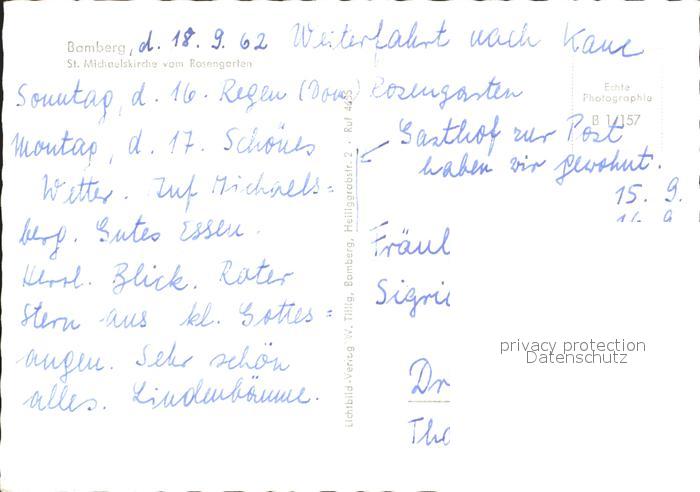 Bamberg, d. 18. 9. 62 Weiterfahrt nach
St. Michaelskirche vom Rosengarten
Sonntag, d. 16. Regen (Dom) Rosengarten
Montag, d. 17. Schönes
Wetter. Auf Michaels=
berg. Gutes Essen.
Herrl. Blick. Roter
Stern aus kl. Gottes=
augen. Sehr schön
alles. Lindenbäume.
Lichtbild-Verlag W. Tillig, Bamberg, Heiliggrabstr. 2 · Ruf
Echte
Photographie
B 1/157
Gasthof zur Post
haben wir gewohnt.
15. 9.
Fräul
Sigri
Dr
Tho
privacy protection
Datenschutz